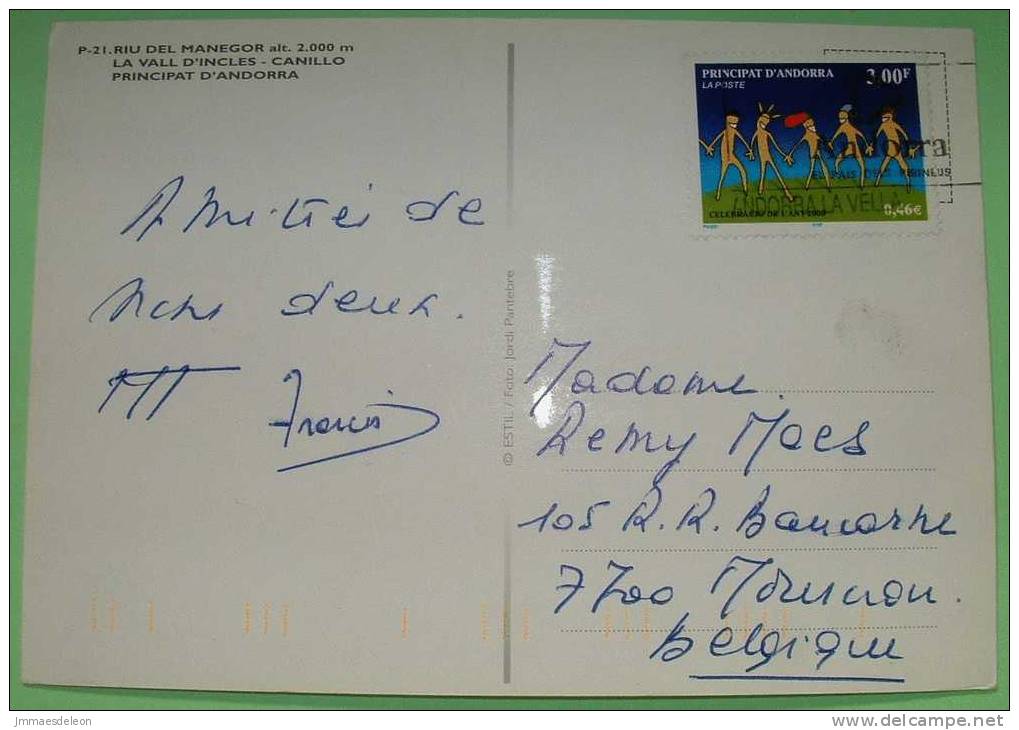 P-21. RIU DEL MANEGOR alt. 2.000 m
LA VALL D'INCLES - CANILLO
PRINCIPAT D'ANDORRA
PRINCIPAT D'ANDORRA 3,00F
LA POSTE
Andorra
EL PAIS DELS PIRINEUS
ANDORRA LA VELLA
CELEBRACIO DE L'ANY 2000 0,46€
Amitiés de
nous deux.
Francis
© ESTIL / Foto. Jordi Pantebre
Madame
Remy Maes
105 R. R.
7700 Mouscron.
Belgique
jmmaesdeleon
www.delcampe.net